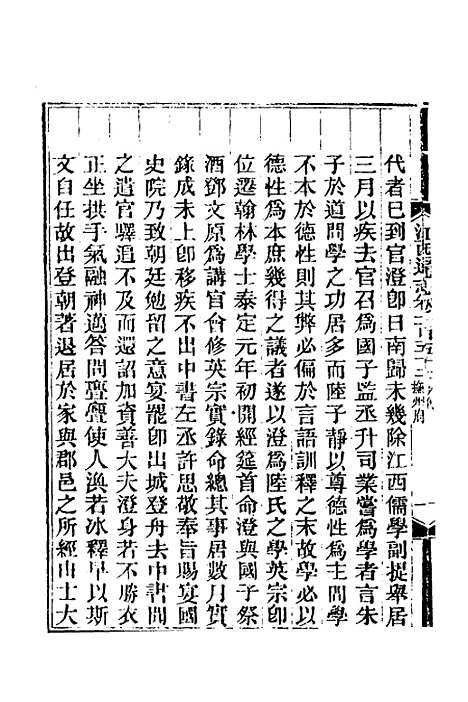 江西通志卷一百五十二 撫州府
代者已到官澄卽日南歸未幾除江西儒學副提舉居
三月以疾去官召爲國子監丞升司業嘗爲學者言朱
子於道問學之功居多而陸子靜以尊德性爲主問學
不本於德性則其弊必偏於言語訓釋之末故學必以
德性爲本庶幾得之議者遂以澄爲陸氏之學英宗卽
位遷翰林學士泰定元年初開經筵首命澄與國子祭
酒鄧文原爲講官會修英宗實錄命總其事居數月實
錄成未上卽移疾不出中書左丞許思敬奉旨賜宴國
史院乃致朝廷勉留之意宴罷卽出城登舟去中書聞
之遣官驛追不及而還詔加資善大夫澄身若不勝衣
正坐拱手氣融神邁答問亹亹使人渙若冰釋早以斯
文自任故出登朝著退居於家與郡邑之所經由士大